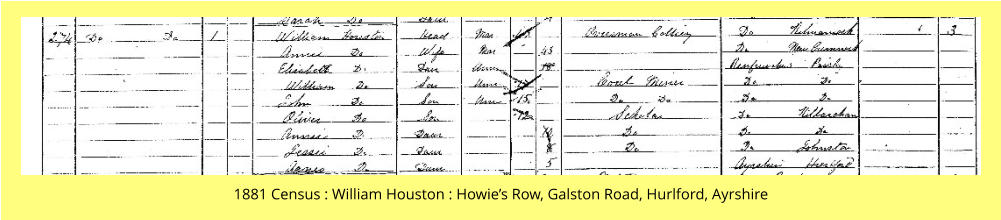 Sarah Do Daur
274 Do Do 1 William Houston Head Mar 45 Oversman Colliery Do Kilmarnock 1 3
Annie Do Wife Mar 43 Do New Cumnock
Elizabeth D. Daur Unm 18 Renfrewshire Paisley
William Do Son Unm Coal Miner Do Do
John Do Son Unm 15 Do Do Do Do
Oliver Do Son 12 Scholar Do Kilbarchan
Annie D. Daur 10 Do Do Do
Jessie D. Daur 8 Do Do Johnston
Do Daur 5 Ayrshire Hurlford
1881 Census : William Houston : Howie’s Row, Galston Road, Hurlford, Ayrshire